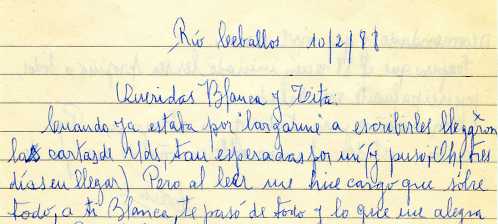 Río Ceballos 10/2/98
Queridas Blanca y Tita:
Cuando ya estaba por largarme a escribirles llegaron
las cartas de Uds, tan esperadas por mí (y puso, Oh! tres
días en llegar) Pero al leer me hice cargo que sobre
todo, a ti Blanca, te pasó de todo y lo que me alegra